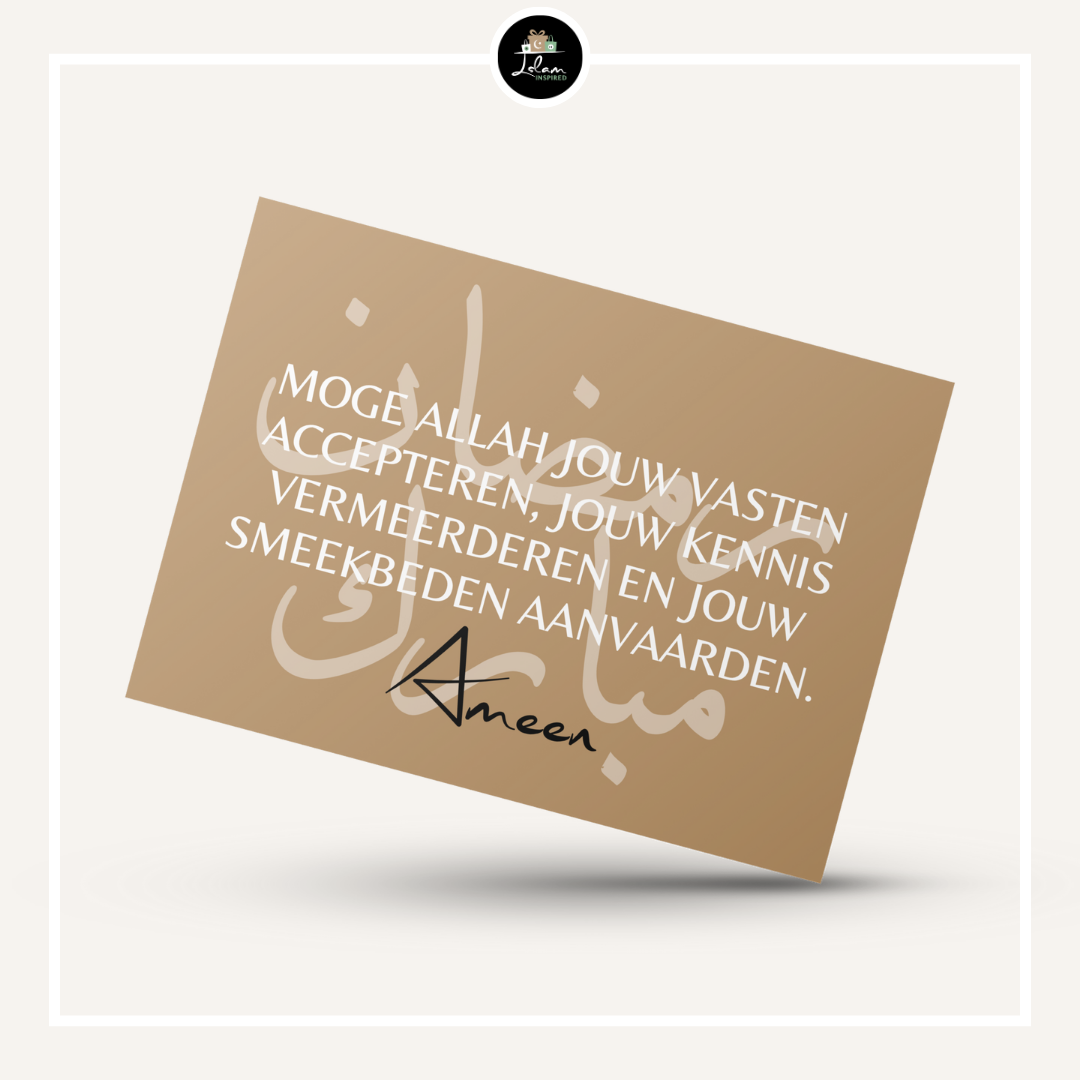 Islam
INSPIRED
رمضان
مبارك
MOGE ALLAH JOUW VASTEN
ACCEPTEREN, JOUW KENNIS
VERMEERDEREN EN JOUW
SMEEKBEDEN AANVAARDEN.
Ameen